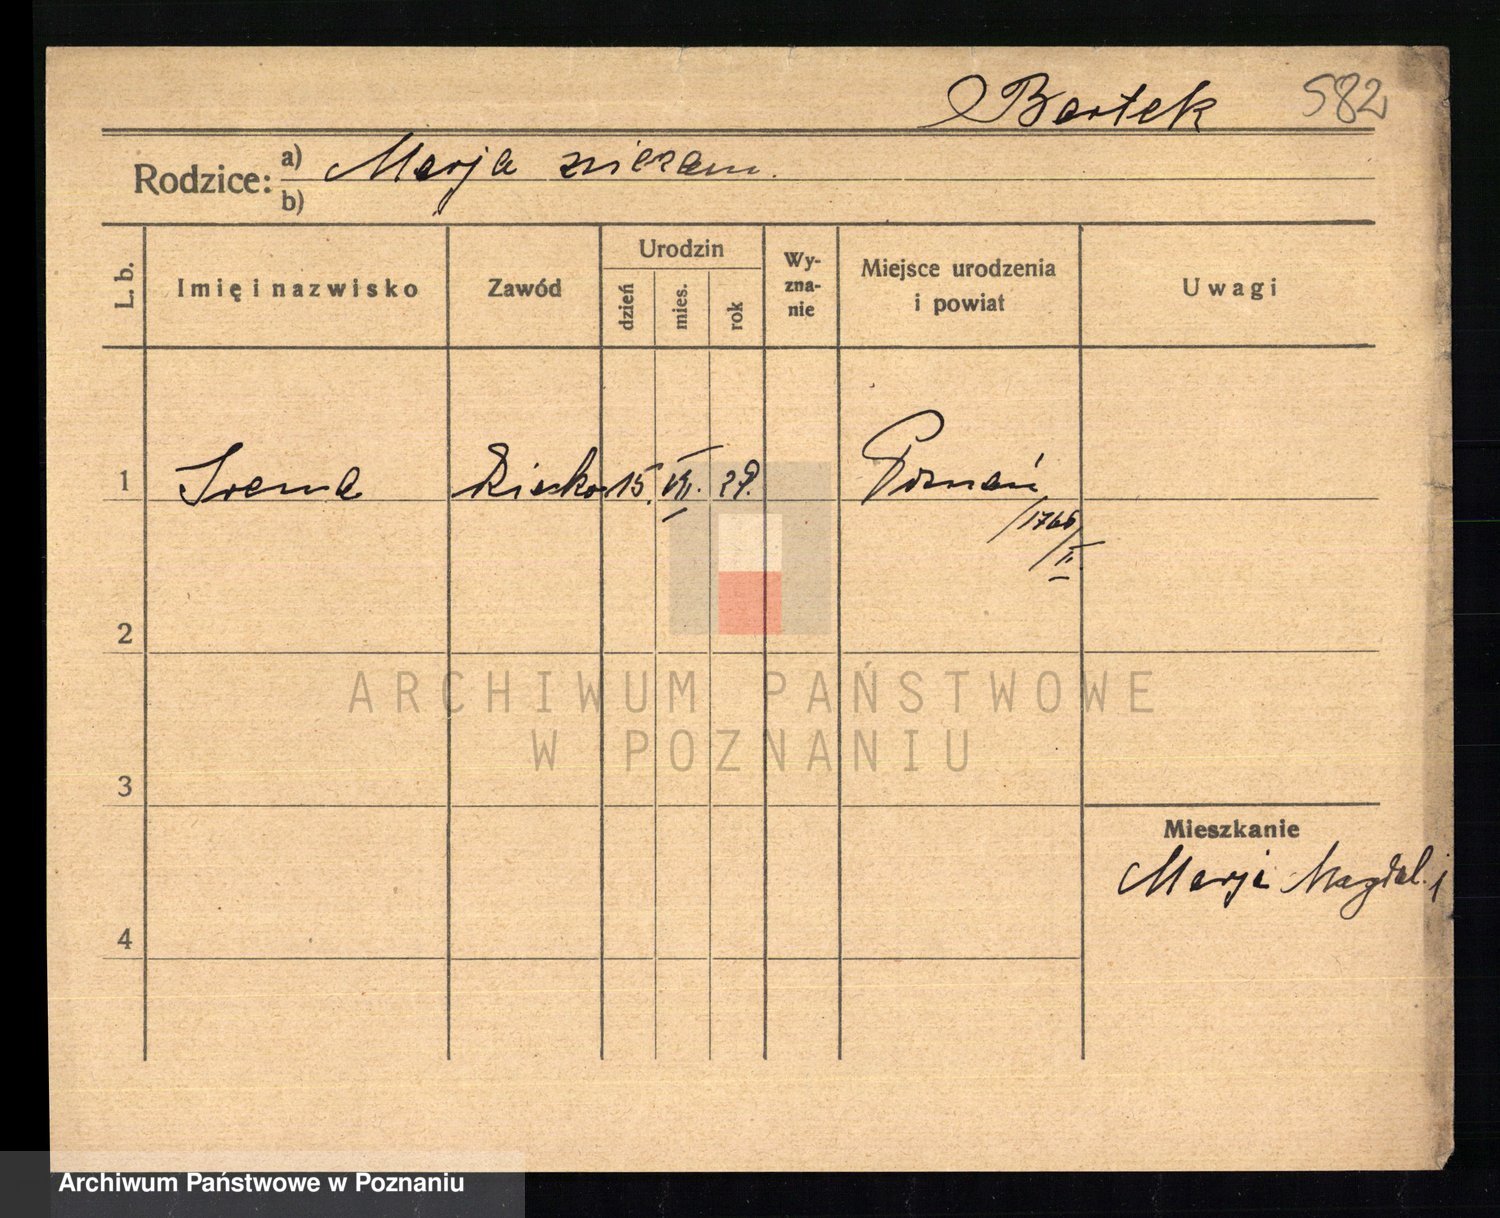 Bartek 582
Rodzice: a) Marja niezam.
b)
L. b. Imię i nazwisko Zawód Urodzin dzień mies. rok Wy-zna-nie Miejsce urodzenia i powiat Uwagi
1 Irena 15. VII. 29. Poznań
/1766/II
2
3
Mieszkanie
Marji Magdal. 1
4
ARCHIWUM PAŃSTWOWE
W POZNANIU
Archiwum Państwowe w Poznaniu